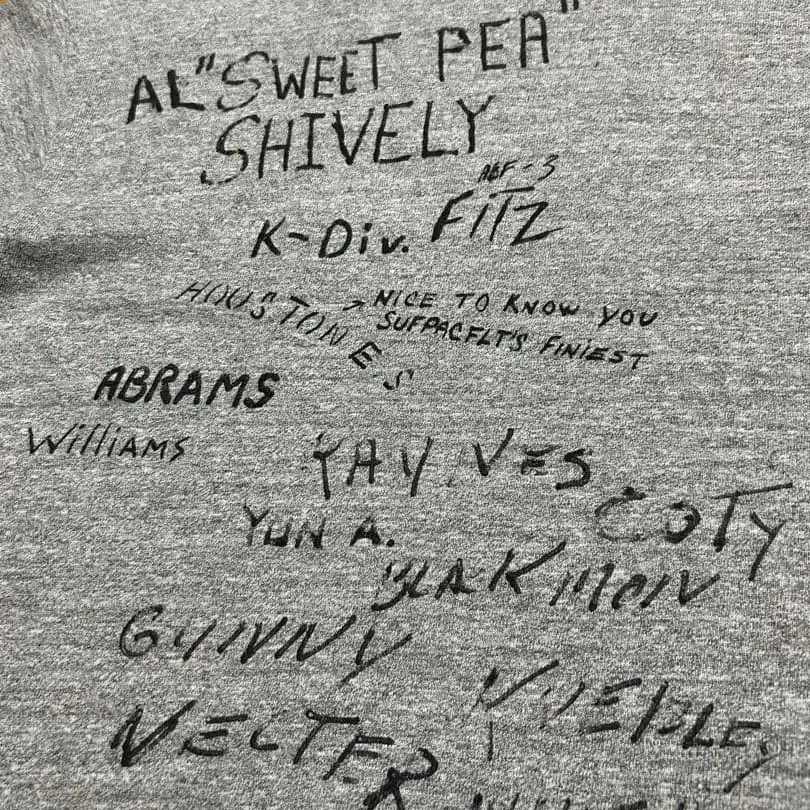 AL "SWEET PEA"
SHIVELY
ABF-3
K-Div. FiTZ
HOUSTON E S
→ NICE TO KNOW YOU
SUFPACFLT'S FINIEST
ABRAMS
WilliAMS
COTY
YUN A.
BLAKMON
GUNNY
NECTER